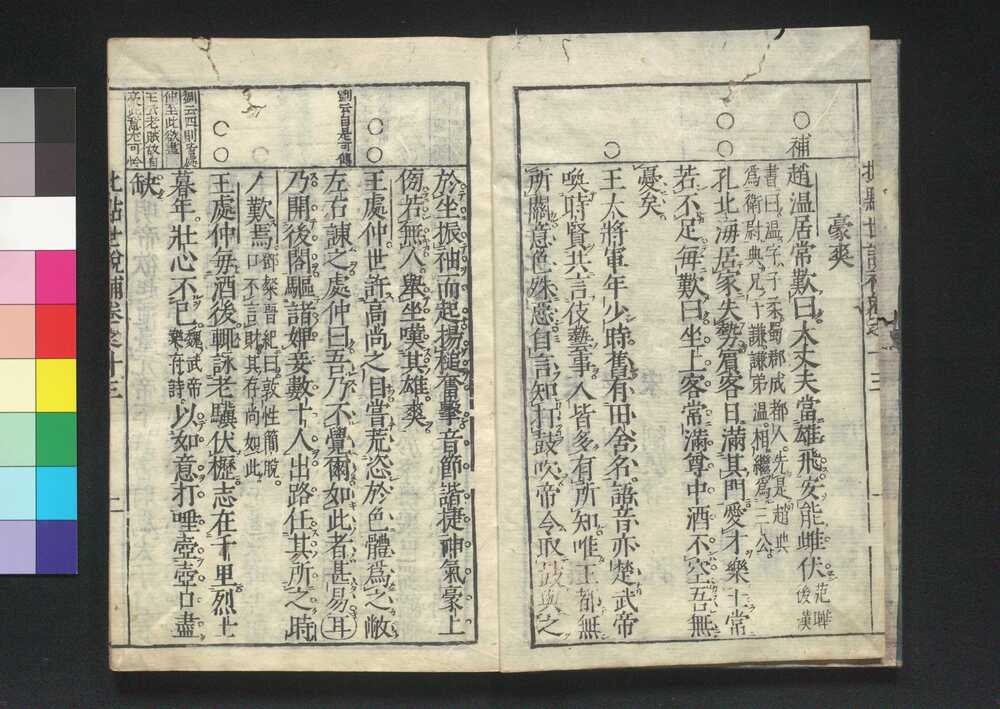 豪爽
補
趙温居常歎曰大丈夫當雄飛安能雌伏范曄後漢
書曰温字子柔蜀郡成都人先是趙典
爲衛尉典兄子謙謙弟温相繼爲三公
孔北海居家失勢賓客日滿其門愛才樂士常
若不足每歎曰坐上客常滿尊中酒不空吾無
憂矣
王大將軍年少時舊有田舍名語音亦楚武帝
喚時賢共言伎藝事人皆多有所知唯王都無
所關意色殊惡自言知打鼓吹帝令取鼓與之
於坐振袖而起揚槌奮擊音節諧捷神氣豪上
傍若無人舉坐嘆其雄爽
劉云自是可傳
王處仲世許高尚之目嘗荒恣於色體爲之敝
左右諫之處仲曰吾乃不覺爾如此者甚易耳
乃開後閤驅諸婢妾數十人出路任其所之時
人歎焉鄧粲晉紀曰敦性簡脫
口不言財其存尚如此
王處仲每酒後輒詠老驥伏櫪志在千里烈士
暮年壯心不已魏武帝
樂府詩以如意打唾壺壺口盡
缺
劉云四則皆處
仲至此欲盡
王云老賊故自
批點世說補卷之十三